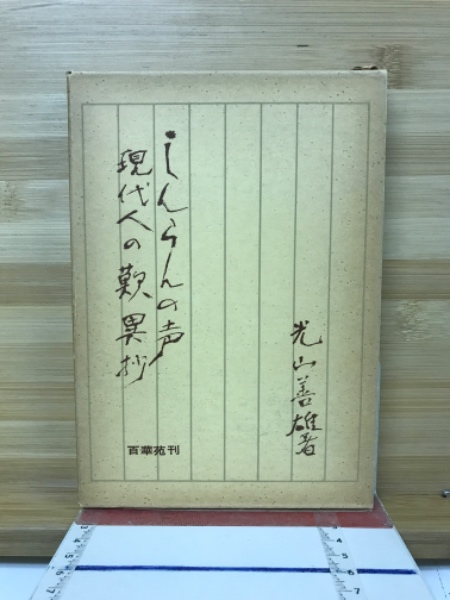 しんらんの声
現代人の歎異抄
光山善雄著
百華苑刊
4
5
6
7